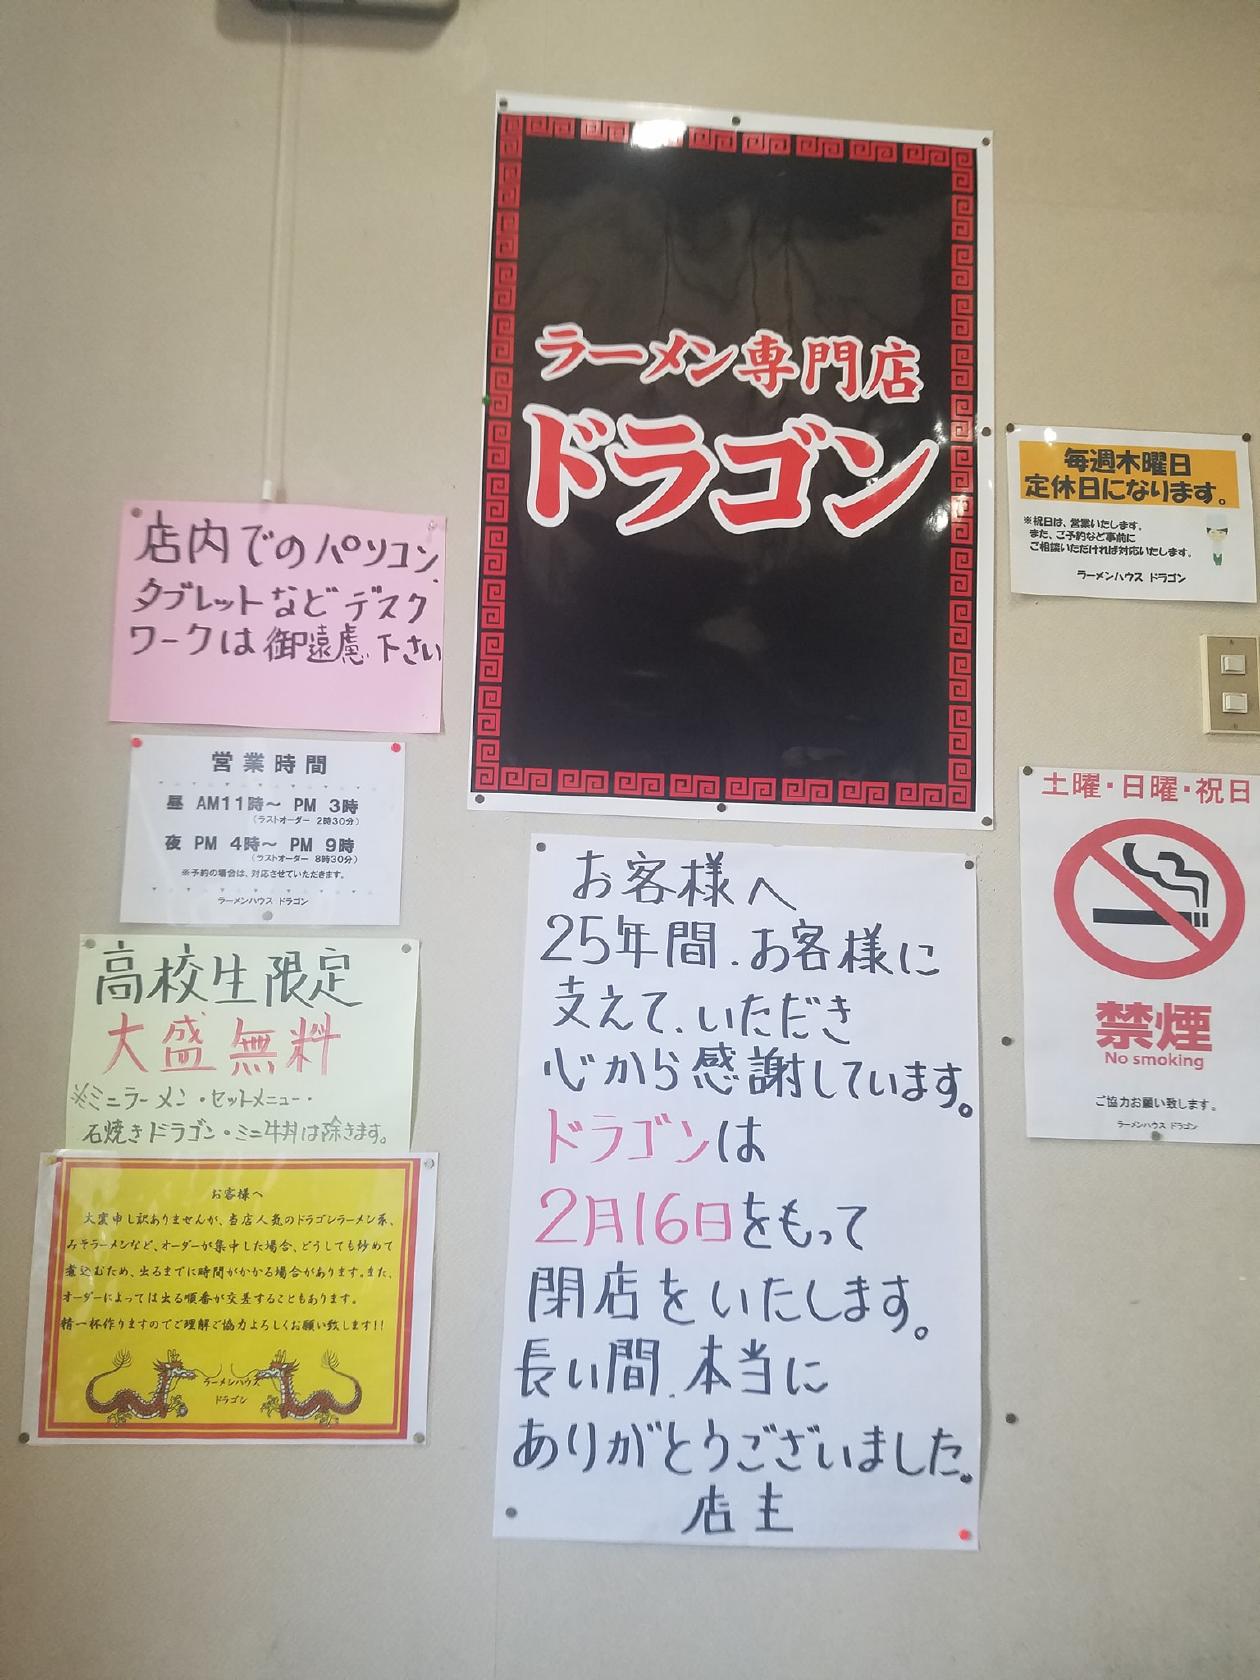 ラーメン専門店
ドラゴン
店内でのパソコン、
タブレットなどデスク
ワークは御遠慮下さい
営業時間
昼 AM11時〜 PM 3時
(ラストオーダー 2時30分)
夜 PM 4時〜 PM 9時
(ラストオーダー 8時30分)
※予約の場合は、対応させていただきます。
ラーメンハウス ドラゴン
高校生限定
大盛無料
※ミニラーメン・セットメニュー・
石焼きドラゴン・ミニ牛丼は除きます。
お客様へ
大変申し訳ありませんが、当店人気のドラゴンラーメン系、
みそラーメンなど、オーダーが集中した場合、どうしても炒めて
煮込むため、出るまでに時間がかかる場合があります。また、
オーダーによっては出る順番が交差することもあります。
精一杯作りますのでご理解ご協力よろしくお願い致します!!
ラーメンハウス
ドラゴン
お客様へ
25年間、お客様に
支えて、いただき
心から感謝しています。
ドラゴンは
2月16日をもって
閉店をいたします。
長い間、本当に
ありがとうございました。
店主
毎週木曜日
定休日になります。
※祝日は、営業いたします。
また、ご予約など事前に
ご相談いただければ対応いたします。
ラーメンハウス ドラゴン
土曜・日曜・祝日
禁煙
No smoking
ご協力お願い致します。
ラーメンハウス ドラゴン